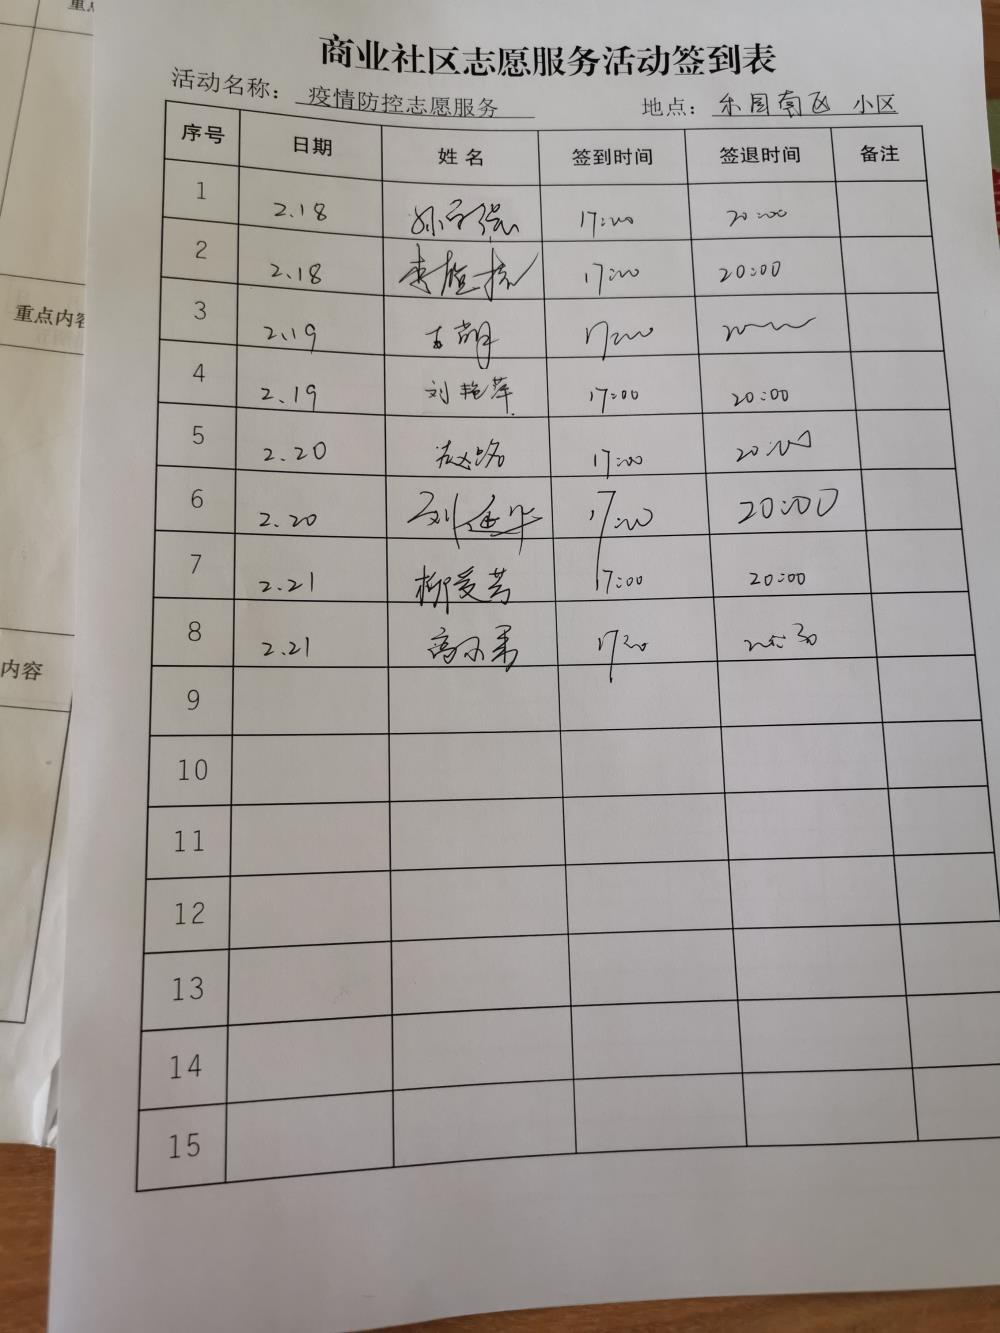 重点
重点内容
内容
商业社区志愿服务活动签到表
活动名称： 疫情防控志愿服务 地点： 乐园南区 小区
序号 日期 姓名 签到时间 签退时间 备注
1 2.18 17:00 20:00
2 2.18 17:00 20:00
3 2.19 17:00
4 2.19 刘艳萍 17:00 20:00
5 2.20 17:00 20:00
6 2.20 17:00 20:00
7 2.21 柳爱芳 17:00 20:00
8 2.21
9
10
11
12
13
14
15